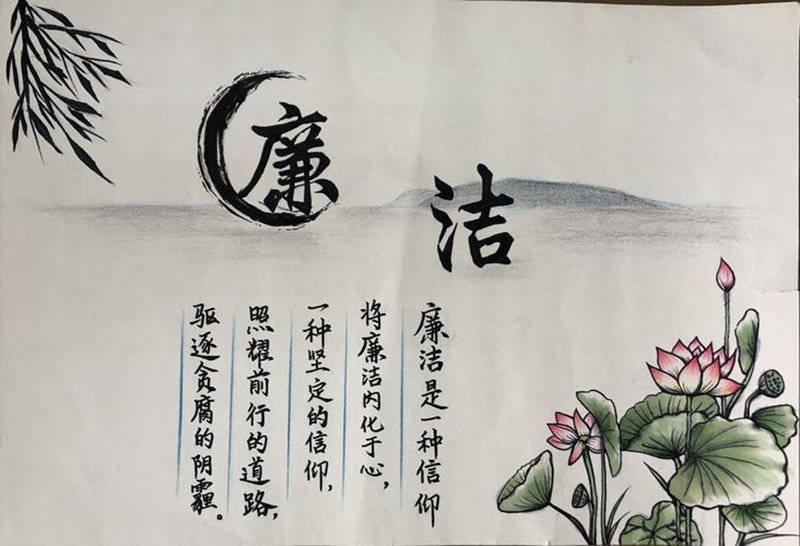 廉洁
廉洁是一种信仰
将廉洁内化于心，
一种坚定的信仰，
照耀前行的道路，
驱逐贪腐的阴霾。